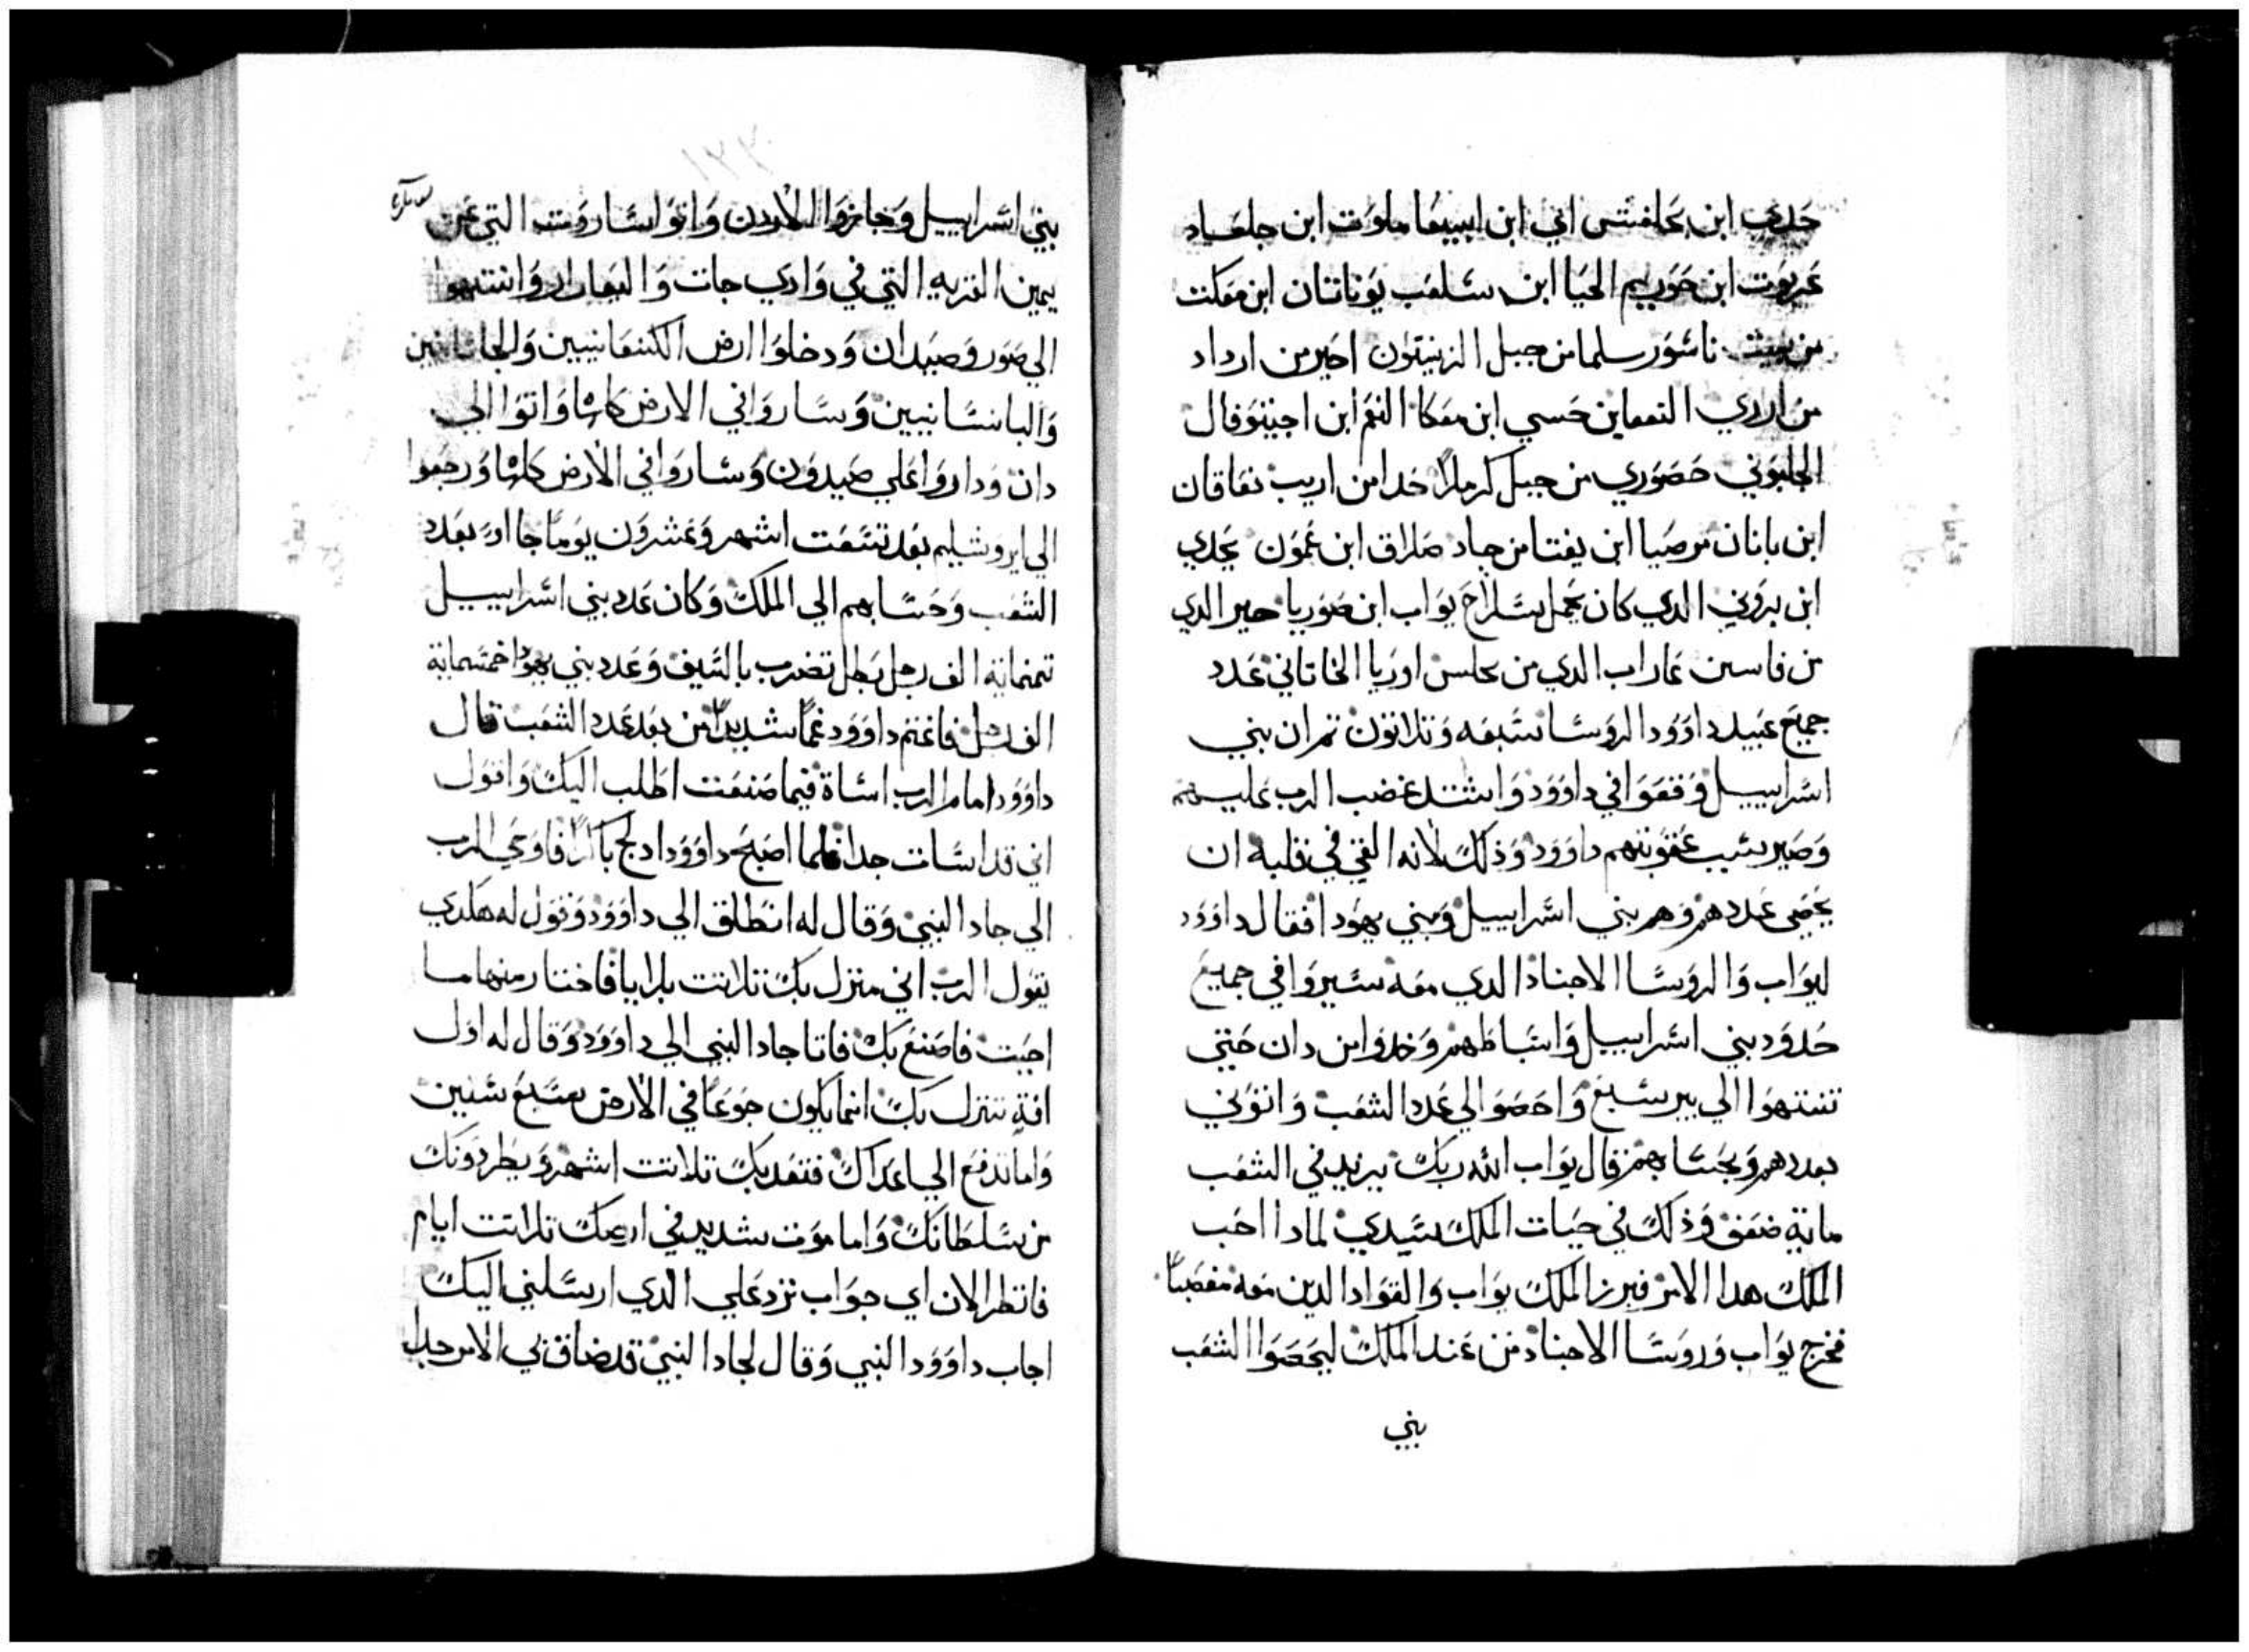 حدي ابن بحلفتسى اني ابن ابيبعا ملوت ابن جلعاد
عربوت ابن حوريم الحيا ابن سلعب يوناتان ابن معكت
من بيت ناشور سلما من جبل الزيتون احير من ارداد
من اردي النعما بن حسي ابن معكا النم ابن اجيتوفال
الجلبوني حصوري من جبل كرملا خدا من اريب نعاقان
ابن بانان من صيا ابن يفتا من جاد صلاق ابن عمون يحدي
ابن بروني الدي كان يحمل سلاح يواب ابن صوريا حير الدي
من فاسين عاراب الدي من علس اوريا الخاتاني عدد
جميع عبيد داوود الروسا سبعه وتلاتون تم ان بني
اسراييل وقعوا في داوود واشتد غضب الرب عليهم
وصير سبب عقوبتهم داوود وذلك لانه القي في قلبه ان
يحصي عددهم وهم بني اسراييل وبني يهودا فقال داوود
ليواب والروسا الاجناد الدي معه سيروا في جميع
حدود بني اسراييل واسباطهم وخدوا من دان حتي
تنتهوا الي بير سبع واحصوا لي عدد الشعب واتوني
بعددهم وبحسابهم فقال يواب الله ربك يزيد في الشعب
ماية ضعف وذلك في حيات الملك سيدي لمادا احب
الملك هدا الامر فبرز الملك يواب والقواد الدين معه مغصبا
فخرج يواب وروسا الاجناد من عند الملك ليحصوا الشعب
بني
بني اسراييل وجازوا الاردن واتوا لساروت التي عن
يمين القريه التي في وادي جات واليعازار وانتهوا
الي صور وصيدان ودخلوا ارض الكنعانيين
واليابسانيين وساروا في الارض كلها واتوا الي
دان وداروا علي صيدون وساروا في الارض كلها ورجعوا
الي ايروشليم بعد تسعت اشهر وعشرون يوما جا اور بعدد
الشعب وحسابهم الي الملك وكان عدد بني اسراييل
تمنماية الف رجل بطل تضرب بالسيف وعدد بني يهودا خمسماية
الف رجل فاغتم داوود غما شديدا من بعد عدد الشعب قال
داوود امام الرب اساة فيما صنعت اطلب اليك واقول
اني قد اسات جدا فلما اصبح داوود ادلج باكرا فاوحي الرب
الي جاد النبي وقال له انطلق الي داوود وقول له هكدي
يقول الرب اني منزل بك تلاتت بلايا فاختار منها ما
احببت فاصنع بك فاتا جاد النبي الي داوود وقال له اول
افة تنزل بك انما يكون جوعا في الارض سبع سنين
واما تدفع الي اعداك فتعديك تلاتت اشهر ويطردونك
من سلطانك واما موت شديد في ارضك تلاتت ايام
فانظر الان اي جواب نرد علي الدي ارسلني اليك
اجاب داوود النبي وقال لجاد النبي قد ضاق بي الامر جدا